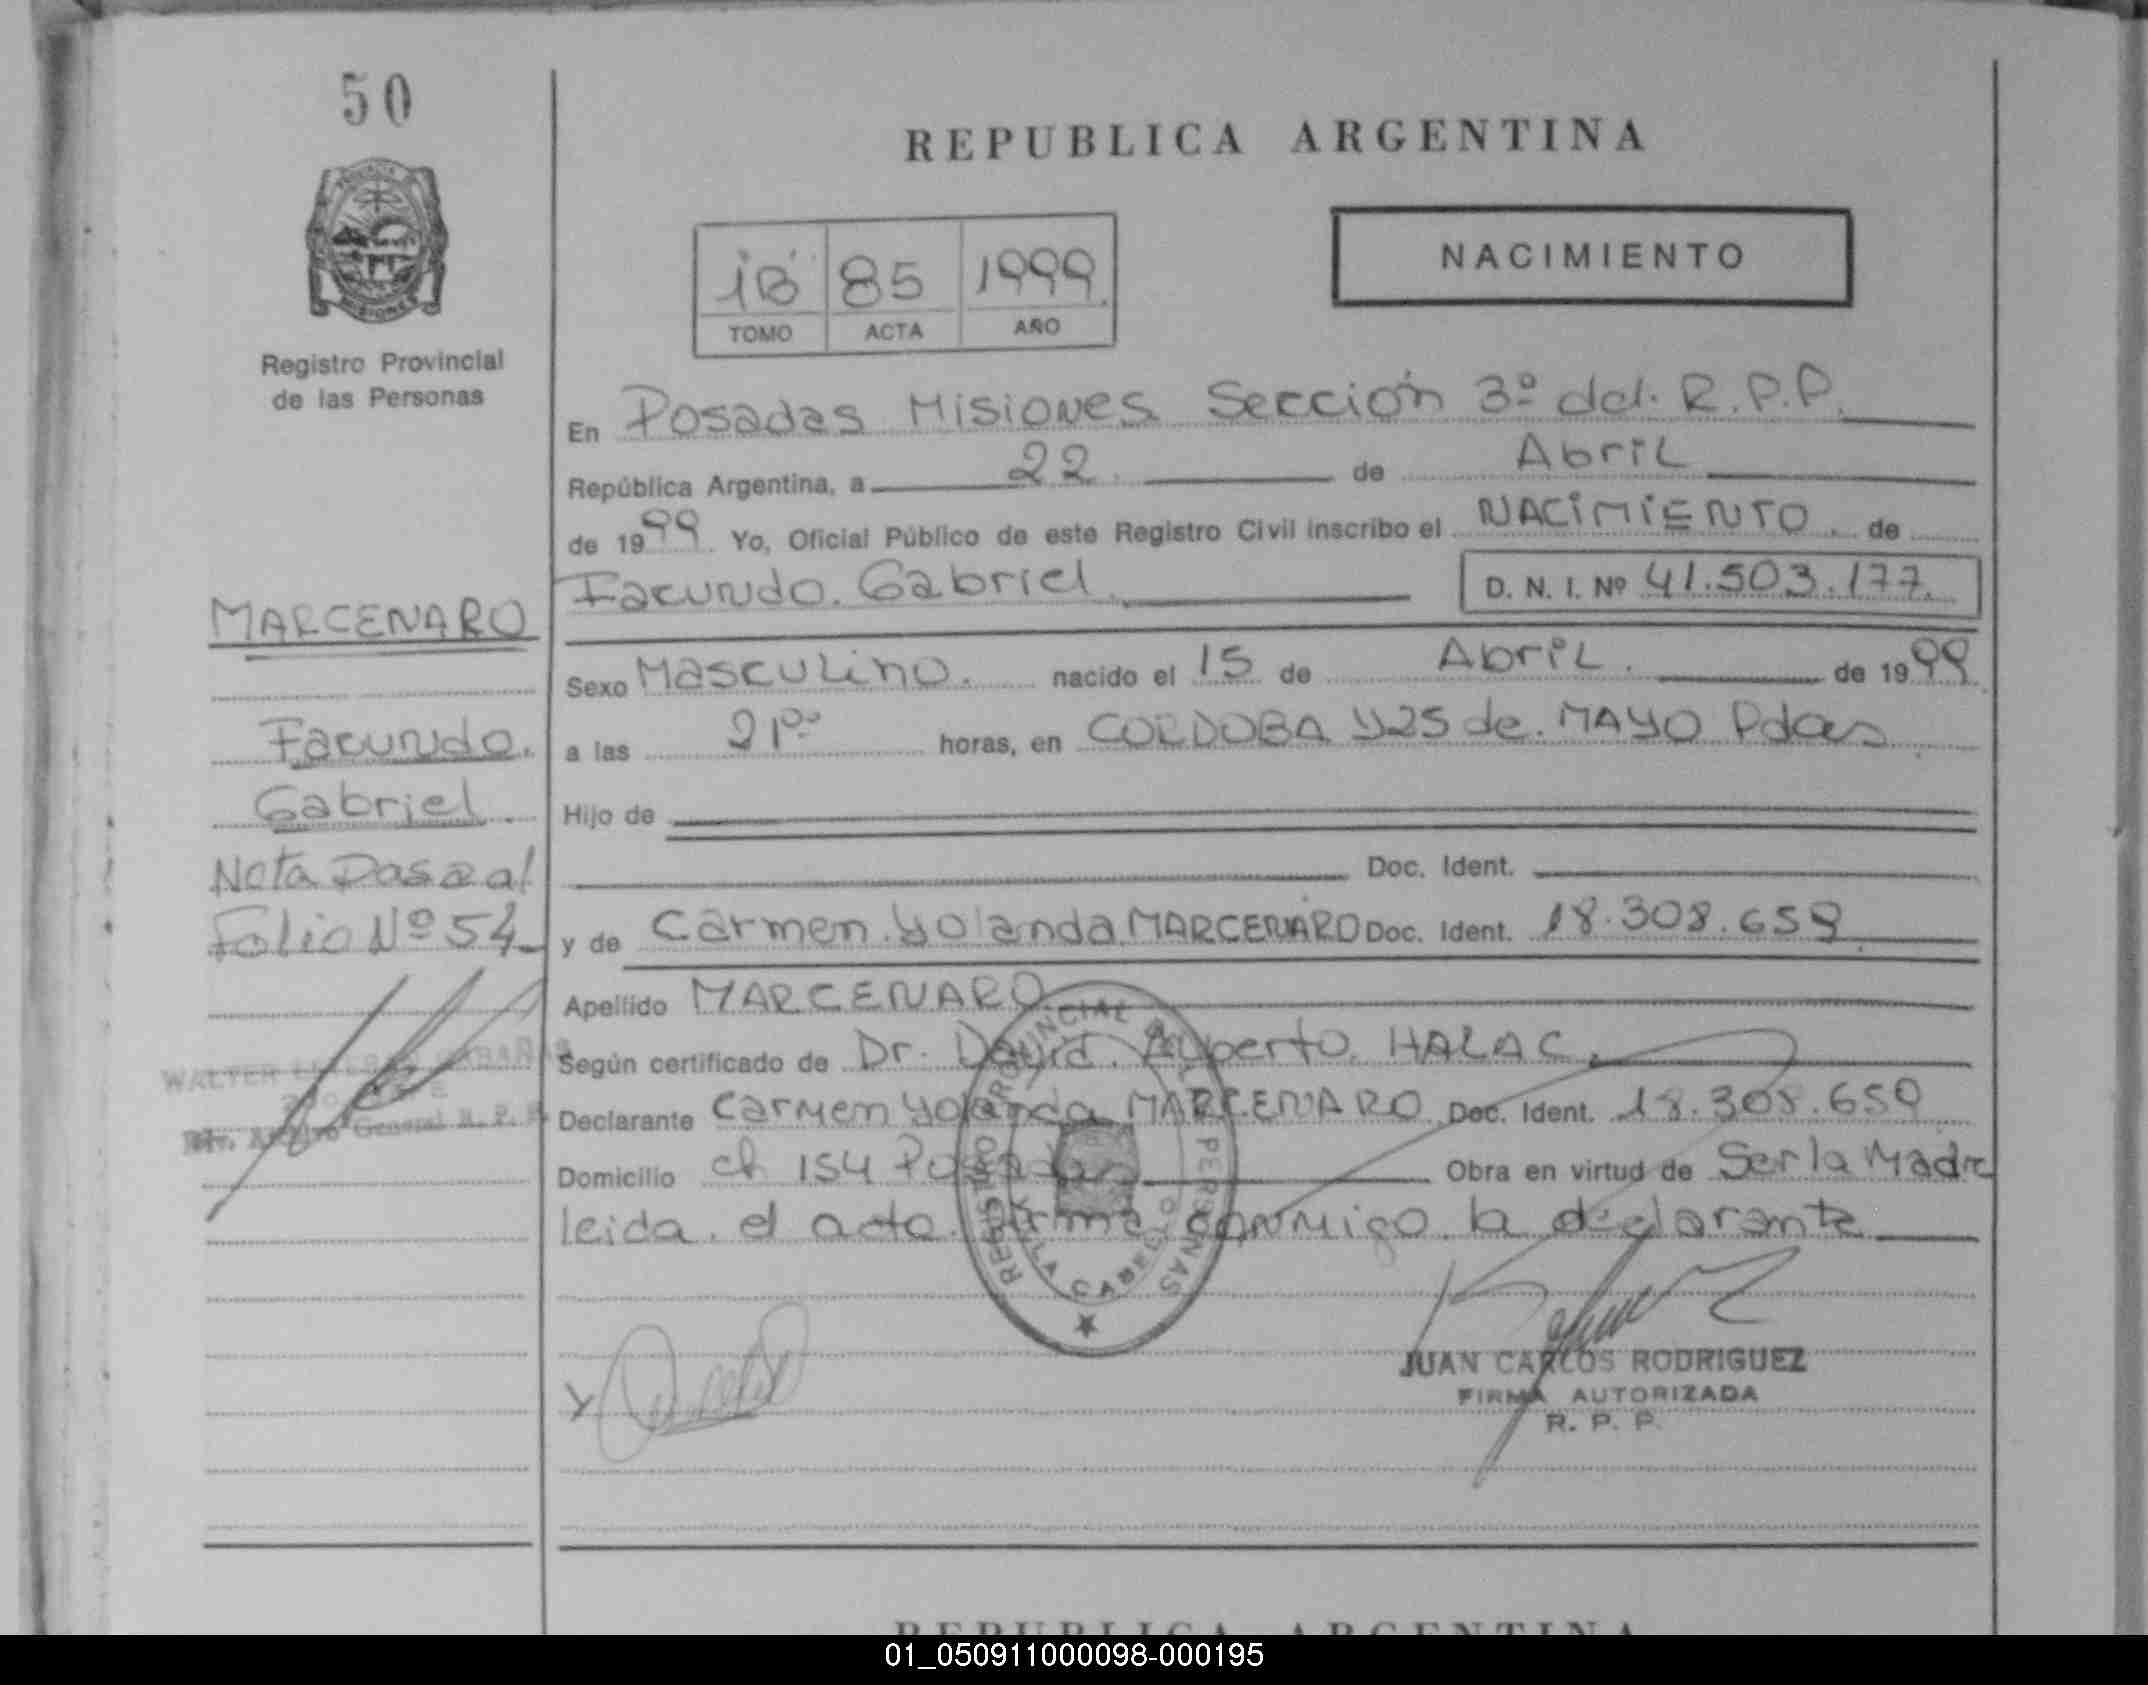 50
REPUBLICA ARGENTINA
NACIMIENTO
85 1999
TOMO ACTA AÑO
Registro Provincial
de las Personas
En Posadas Misiones Sección 3º del. R.P.P.
República Argentina, a 22 de Abril
de 1999 Yo, Oficial Público de este Registro Civil inscribo el NACIMIENTO de
Facundo. Gabriel D. N. I. Nº 41.503.177.
MARCENARO
Sexo Masculino. nacido el 15 de Abril. de 1999
Facundo.
a las 21 horas, en CORDOBA y 25 de. MAYO Pdas
Gabriel
Hijo de
Nota Pasa al
Doc. Ident.
Folio Nº 54
y de Carmen Yolanda MARCENARO Doc. Ident. 18.308.659
Apellido MARCENARO
Según certificado de Dr. David. Alberto. HALAC.
WALTER CABAÑAS
Archivo General R. P. P.
Declarante Carmen Yolanda MARCENARO Doc. Ident. 18.308.659
Domicilio ch 154 Posadas Obra en virtud de Ser la Madre
leida. el acto. firma conmigo. la declarante
REGISTRO PROVINCIAL DE LAS PERSONAS
VILLA CABELLO
JUAN CARLOS RODRIGUEZ
FIRMA AUTORIZADA
R. P. P.
REPUBLICA ARGENTINA
01_050911000098-000195